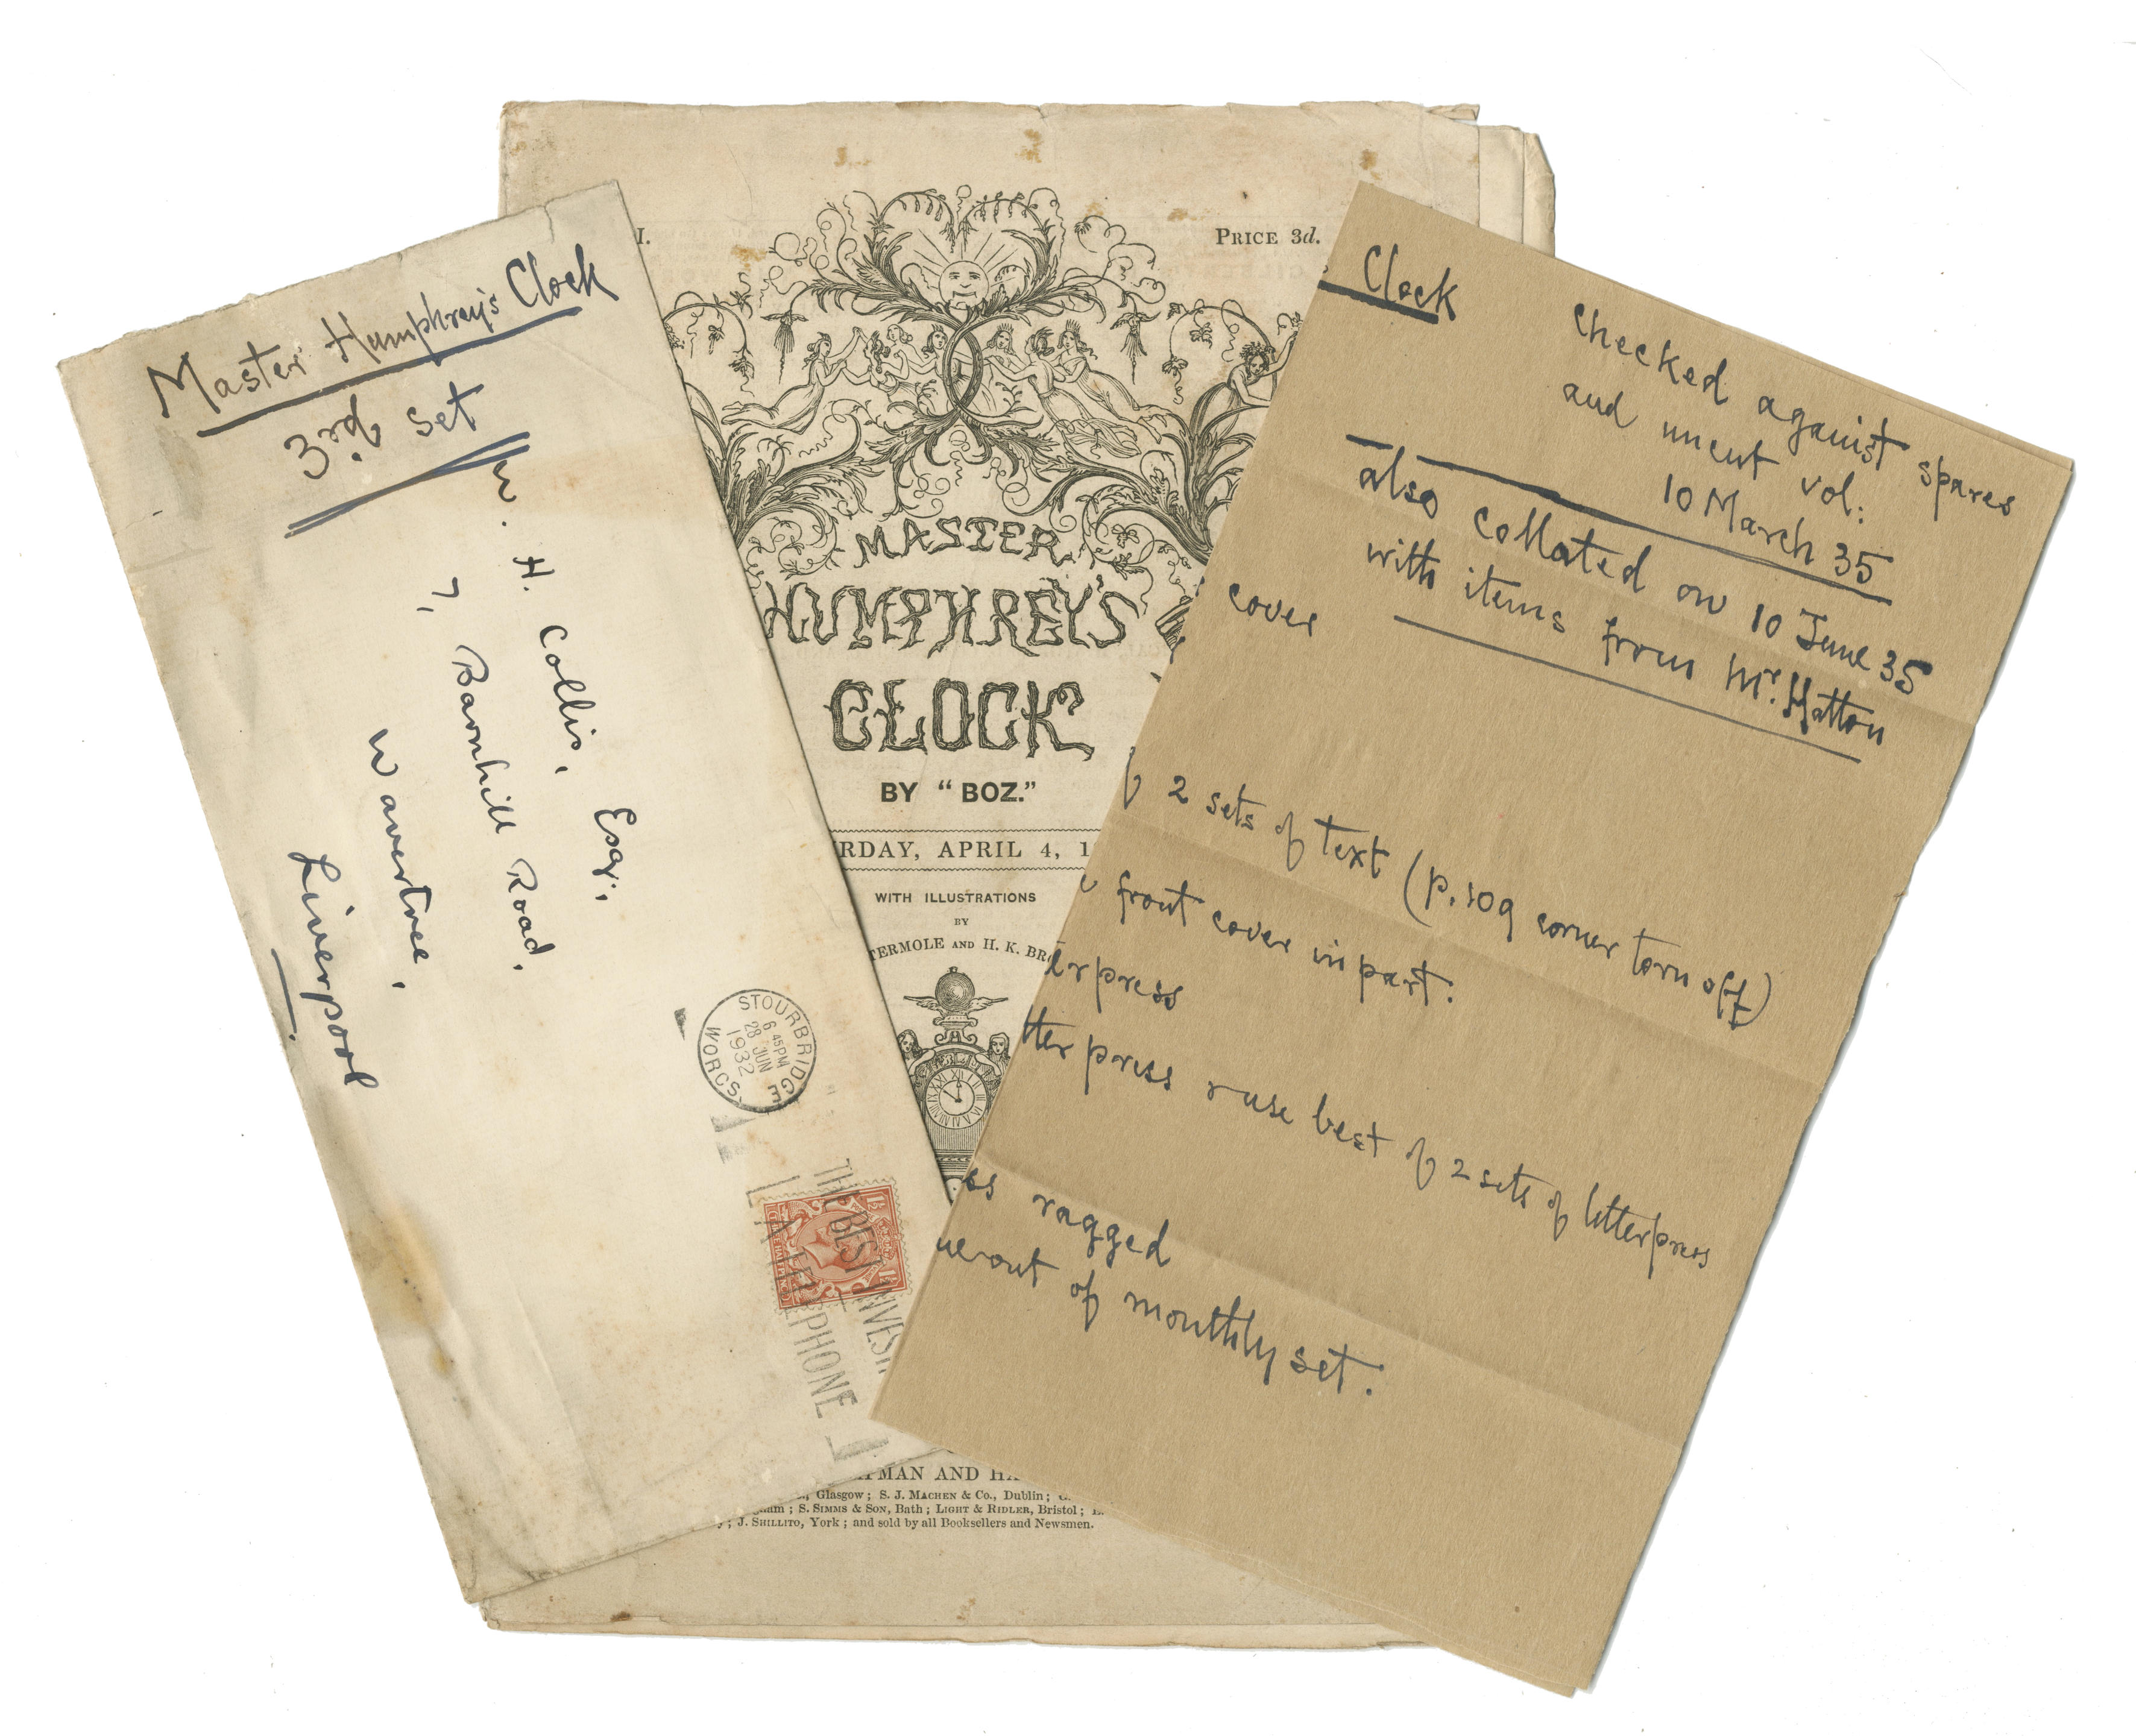 Master Humphrey's Clock
3rd set
W. H. Collis, Esq.,
7, Barnhill Road,
Wavertree,
Liverpool
STOURBRIDGE
6.45PM
28 JUN
1932
WORCS.
THE BEST INVEST
A TELEPHONE
I.
PRICE 3d.
MASTER
HUMPHREY'S
CLOCK
BY "BOZ."
RDAY, APRIL 4, 1
WITH ILLUSTRATIONS
BY
TERMOLE AND H. K. BRO
PMAN AND HA
Glasgow; S. J. MACHEN & Co., Dublin;
am; S. SIMMS & SON, Bath; LIGHT & RIDLER, Bristol;
; J. SHILLITO, York; and sold by all Booksellers and Newsmen.
Clock
checked against spares
and uncut vol:
10 March 35
also collated on 10 June 35
with items from Mr. Hatton
cover
2 sets of text (p. 109 corner torn off)
front cover in part.
erpress
tter press & use best of 2 sets of letterpress
ss ragged
out of monthly set.